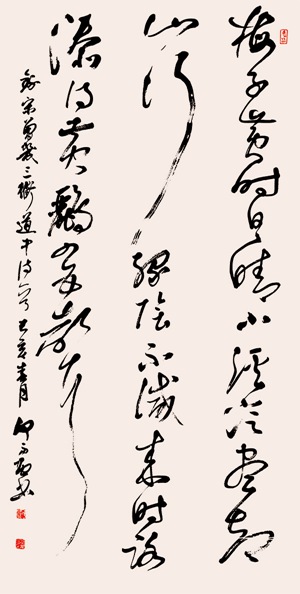 梅子黄时日日晴小溪泛尽却
山行绿阴不减来时路
添得黄鹂四五声
宋曾几三衢道中诗 己亥春月